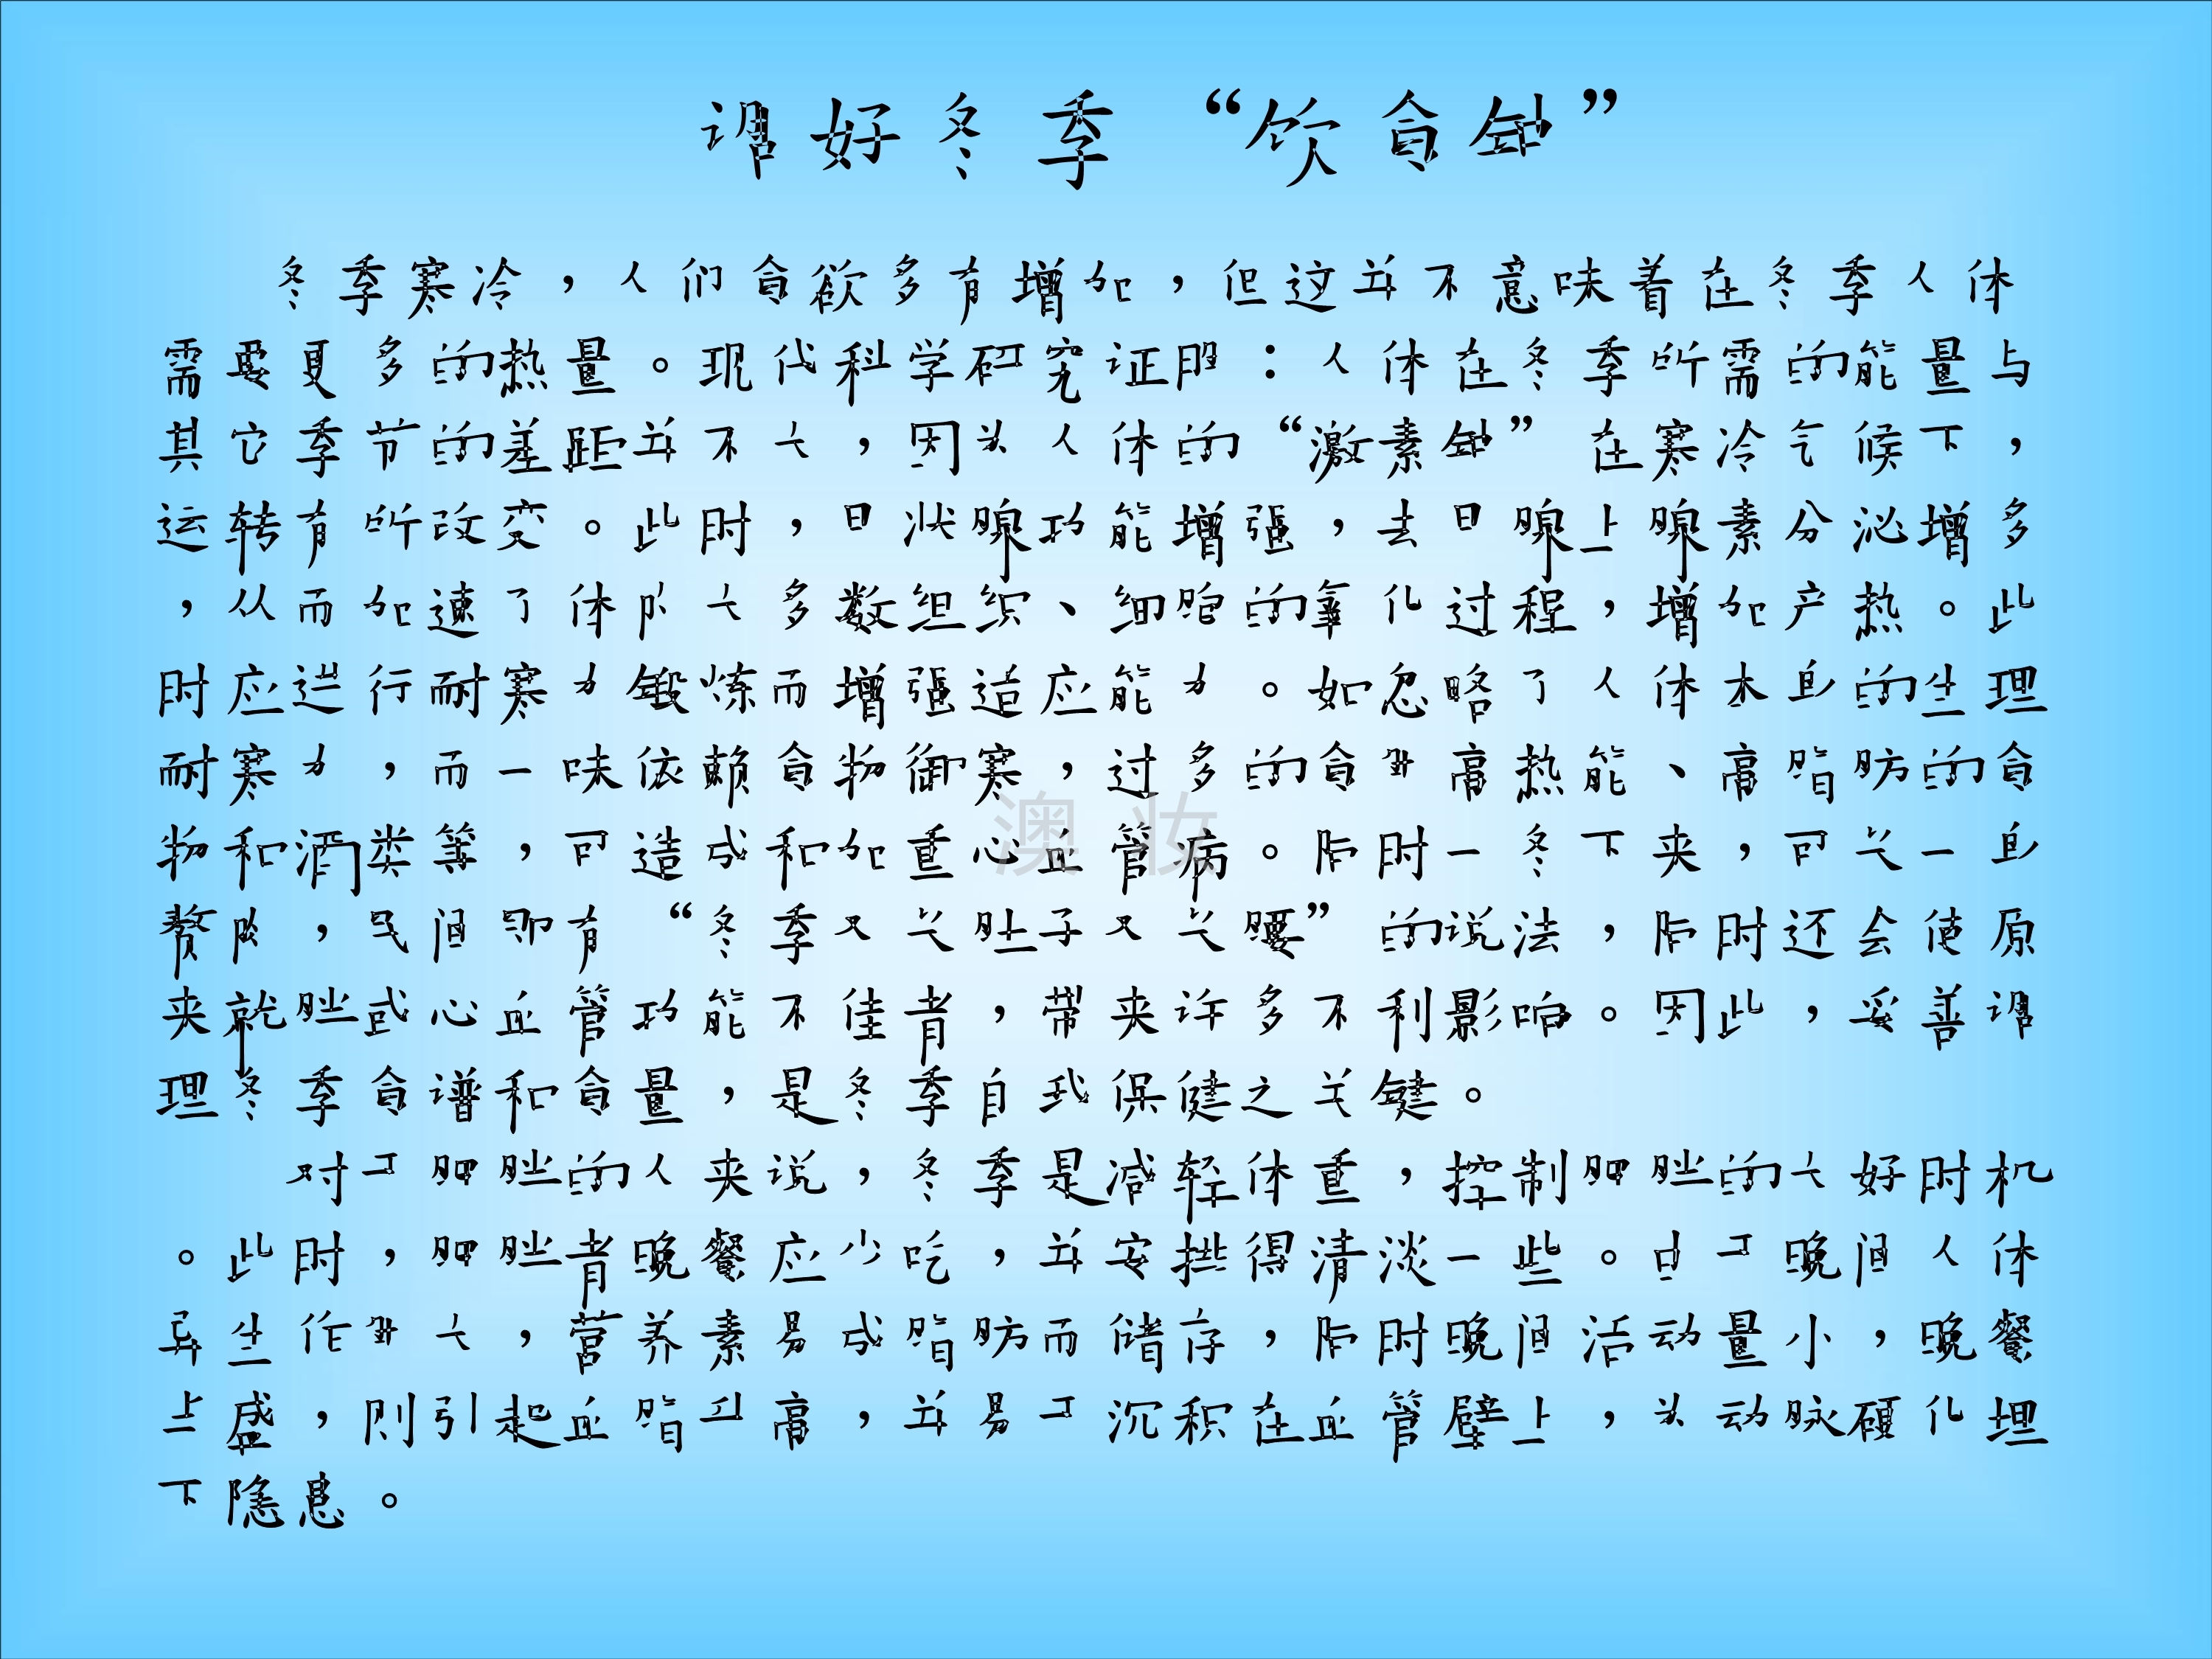 调好冬季“饮食钟”
冬季寒冷，人们食欲多有增加，但这并不意味着在冬季人体
需要更多的热量。现代科学研究证明：人体在冬季所需的能量与
其它季节的差距并不大，因为人体的“激素钟”在寒冷气候下，
运转有所改变。此时，甲状腺功能增强，去甲腺上腺素分泌增多
，从而加速了体内大多数组织、细胞的氧化过程，增加产热。此
时应进行耐寒力锻炼而增强适应能力。如忽略了人体本身的生理
耐寒力，而一味依赖食物御寒，过多的食用高热能、高脂肪的食
物和酒类等，可造成和加重心血管病。同时一冬下来，可长一身
赘肉，民间即有“冬季又长肚子又长腰”的说法，同时还会使原
来就胖或心血管功能不佳者，带来许多不利影响。因此，妥善调
理冬季食谱和食量，是冬季自我保健之关键。
对于肥胖的人来说，冬季是减轻体重，控制肥胖的大好时机
。此时，肥胖者晚餐应少吃，并安排得清淡一些。由于晚间人体
异生作用大，营养素易成脂肪而储存，同时晚间活动量小，晚餐
丰盛，则引起血脂升高，并易于沉积在血管壁上，为动脉硬化埋
下隐患。
澳妆